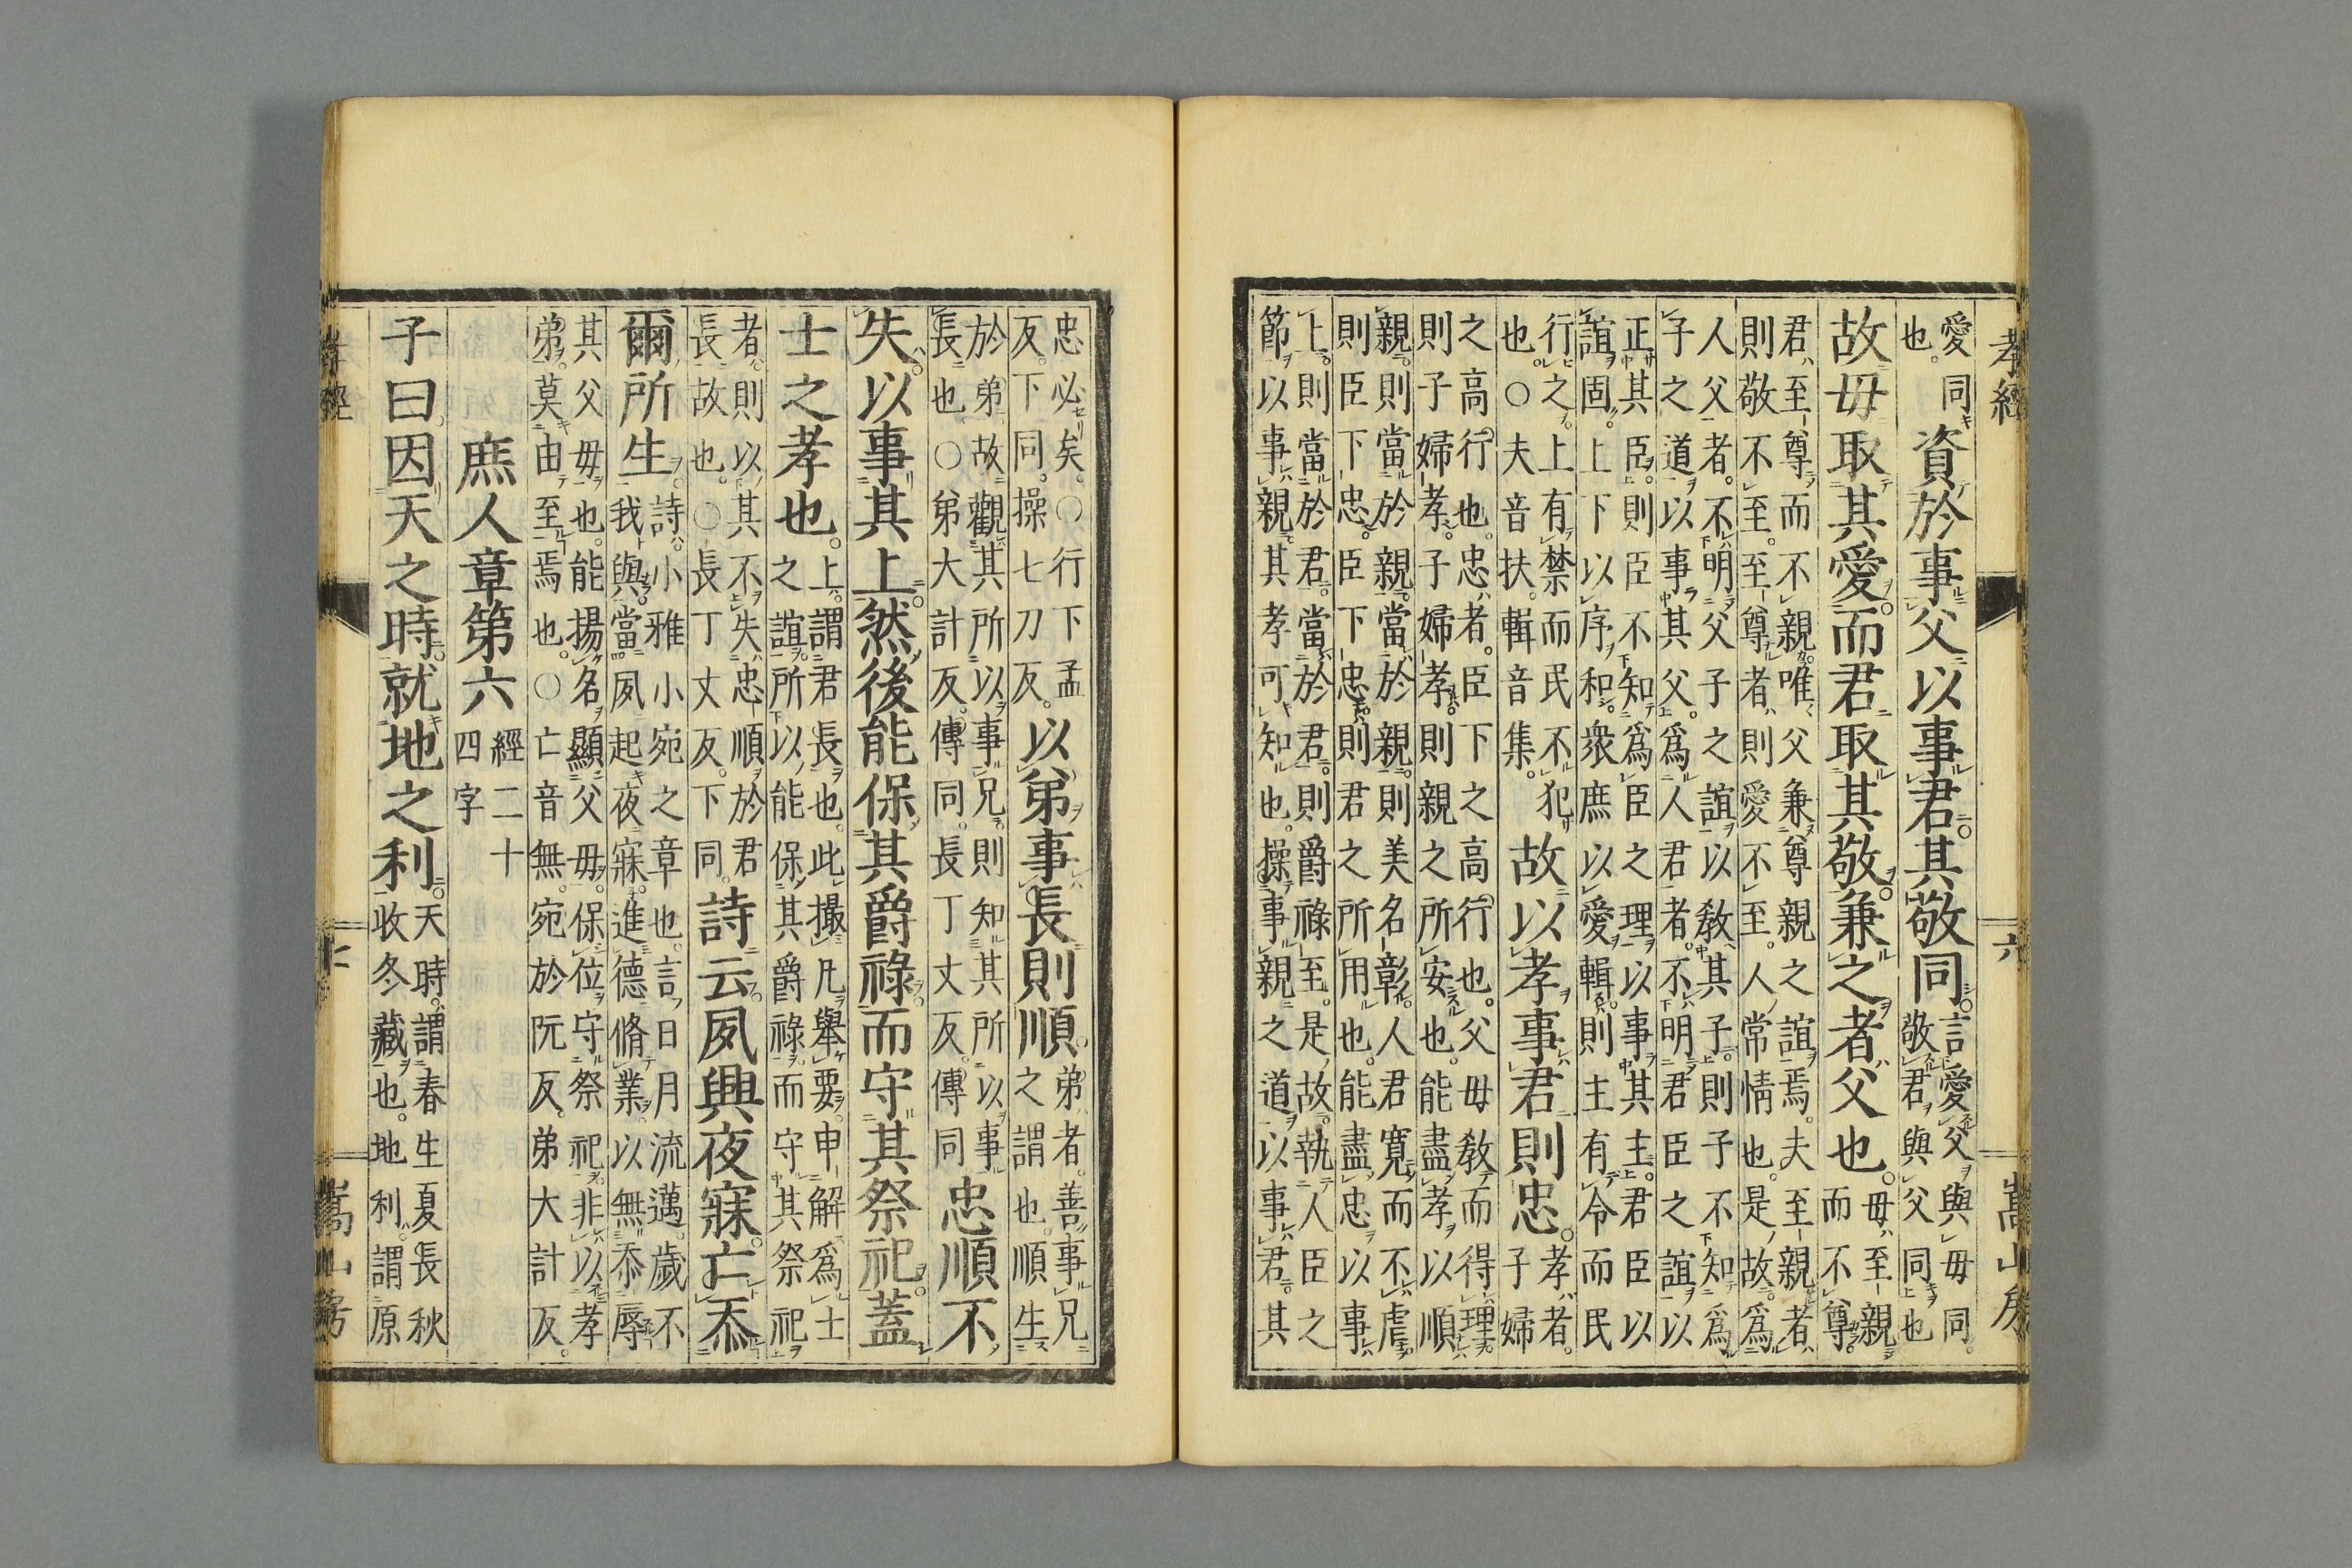 孝經　六　嵩山房
愛同
也。
資於事父以事君。其敬同。
言愛父與母同。
敬君與父同上也
故母取其愛。而君取其敬。兼之者父也。
母至親
而不尊。
君至尊而不親。唯父兼尊親之誼焉。夫至親者
則敬不至。至尊者則愛不至。人常情也。是故爲
人父者。不明父子之誼以教其子。則子不知爲
子之道以事其父。爲人君者。不明君臣之誼以
正其臣。則臣不知爲臣之理以事其主。君臣以
誼固。上下以序和。衆庶以愛輯。則主有令而民
行之。上有禁而民不犯
也。○夫音扶。輯音集。
故以孝事君則忠。
孝者。
子婦
之高行也。忠者。臣下之高行也。父母教而得理。
則子婦孝。子婦孝。則親之所安也。能盡孝以順
親。則當於親。當於親。則美名彰。人君寬而不虐。
則臣下忠。臣下忠。則君之所用也。能盡忠以事
上。則當於君。當於君。則爵祿至。是故執人臣之
節以事親。其孝可知也。操事親之道以事君。其
忠必矣。○行下孟
反。下同。操七刀反。
以弟事長則順。
弟者。善事兄
之謂也。順生
於弟。故觀其所以事兄。則知其所以事
長也。○弟大計反。傳同。長丁丈反。傳同
忠順不
失。以事其上。然後能保其爵祿。而守其祭祀。蓋
士之孝也。
上謂君長也。此撮凡舉要。申解爲士
之誼。所以能保其爵祿。而守其祭祀
者。則以其不失忠順於君
長故也。○長丁丈反。下同。
詩云夙興夜寐。亡忝
爾所生。
詩小雅小宛之章也。言日月流邁。歲不
我與。當夙起夜寐。進德脩業。以無忝辱
其父母也。能揚名顯父母。保位守祭祀。非以孝
弟。莫由至焉也。○亡音無。宛於阮反。弟大計反。
庶人章第六
經二十
四字
子曰。因天之時。就地之利。
天時。謂春生夏長秋
收冬藏也。地利。謂原
孝經　七　嵩山房